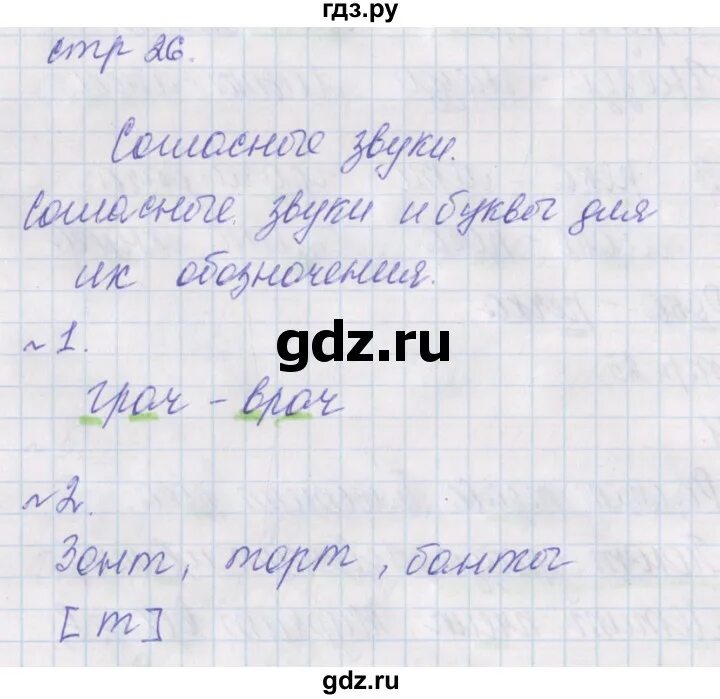 гдз.ру
стр 26.
Согласные звуки.
Согласные звуки и буквы для
их обозначения.
gdz.ru
№1.
грач – врач
№2.
Зонт, торт, банты
[т]
gdz.ru